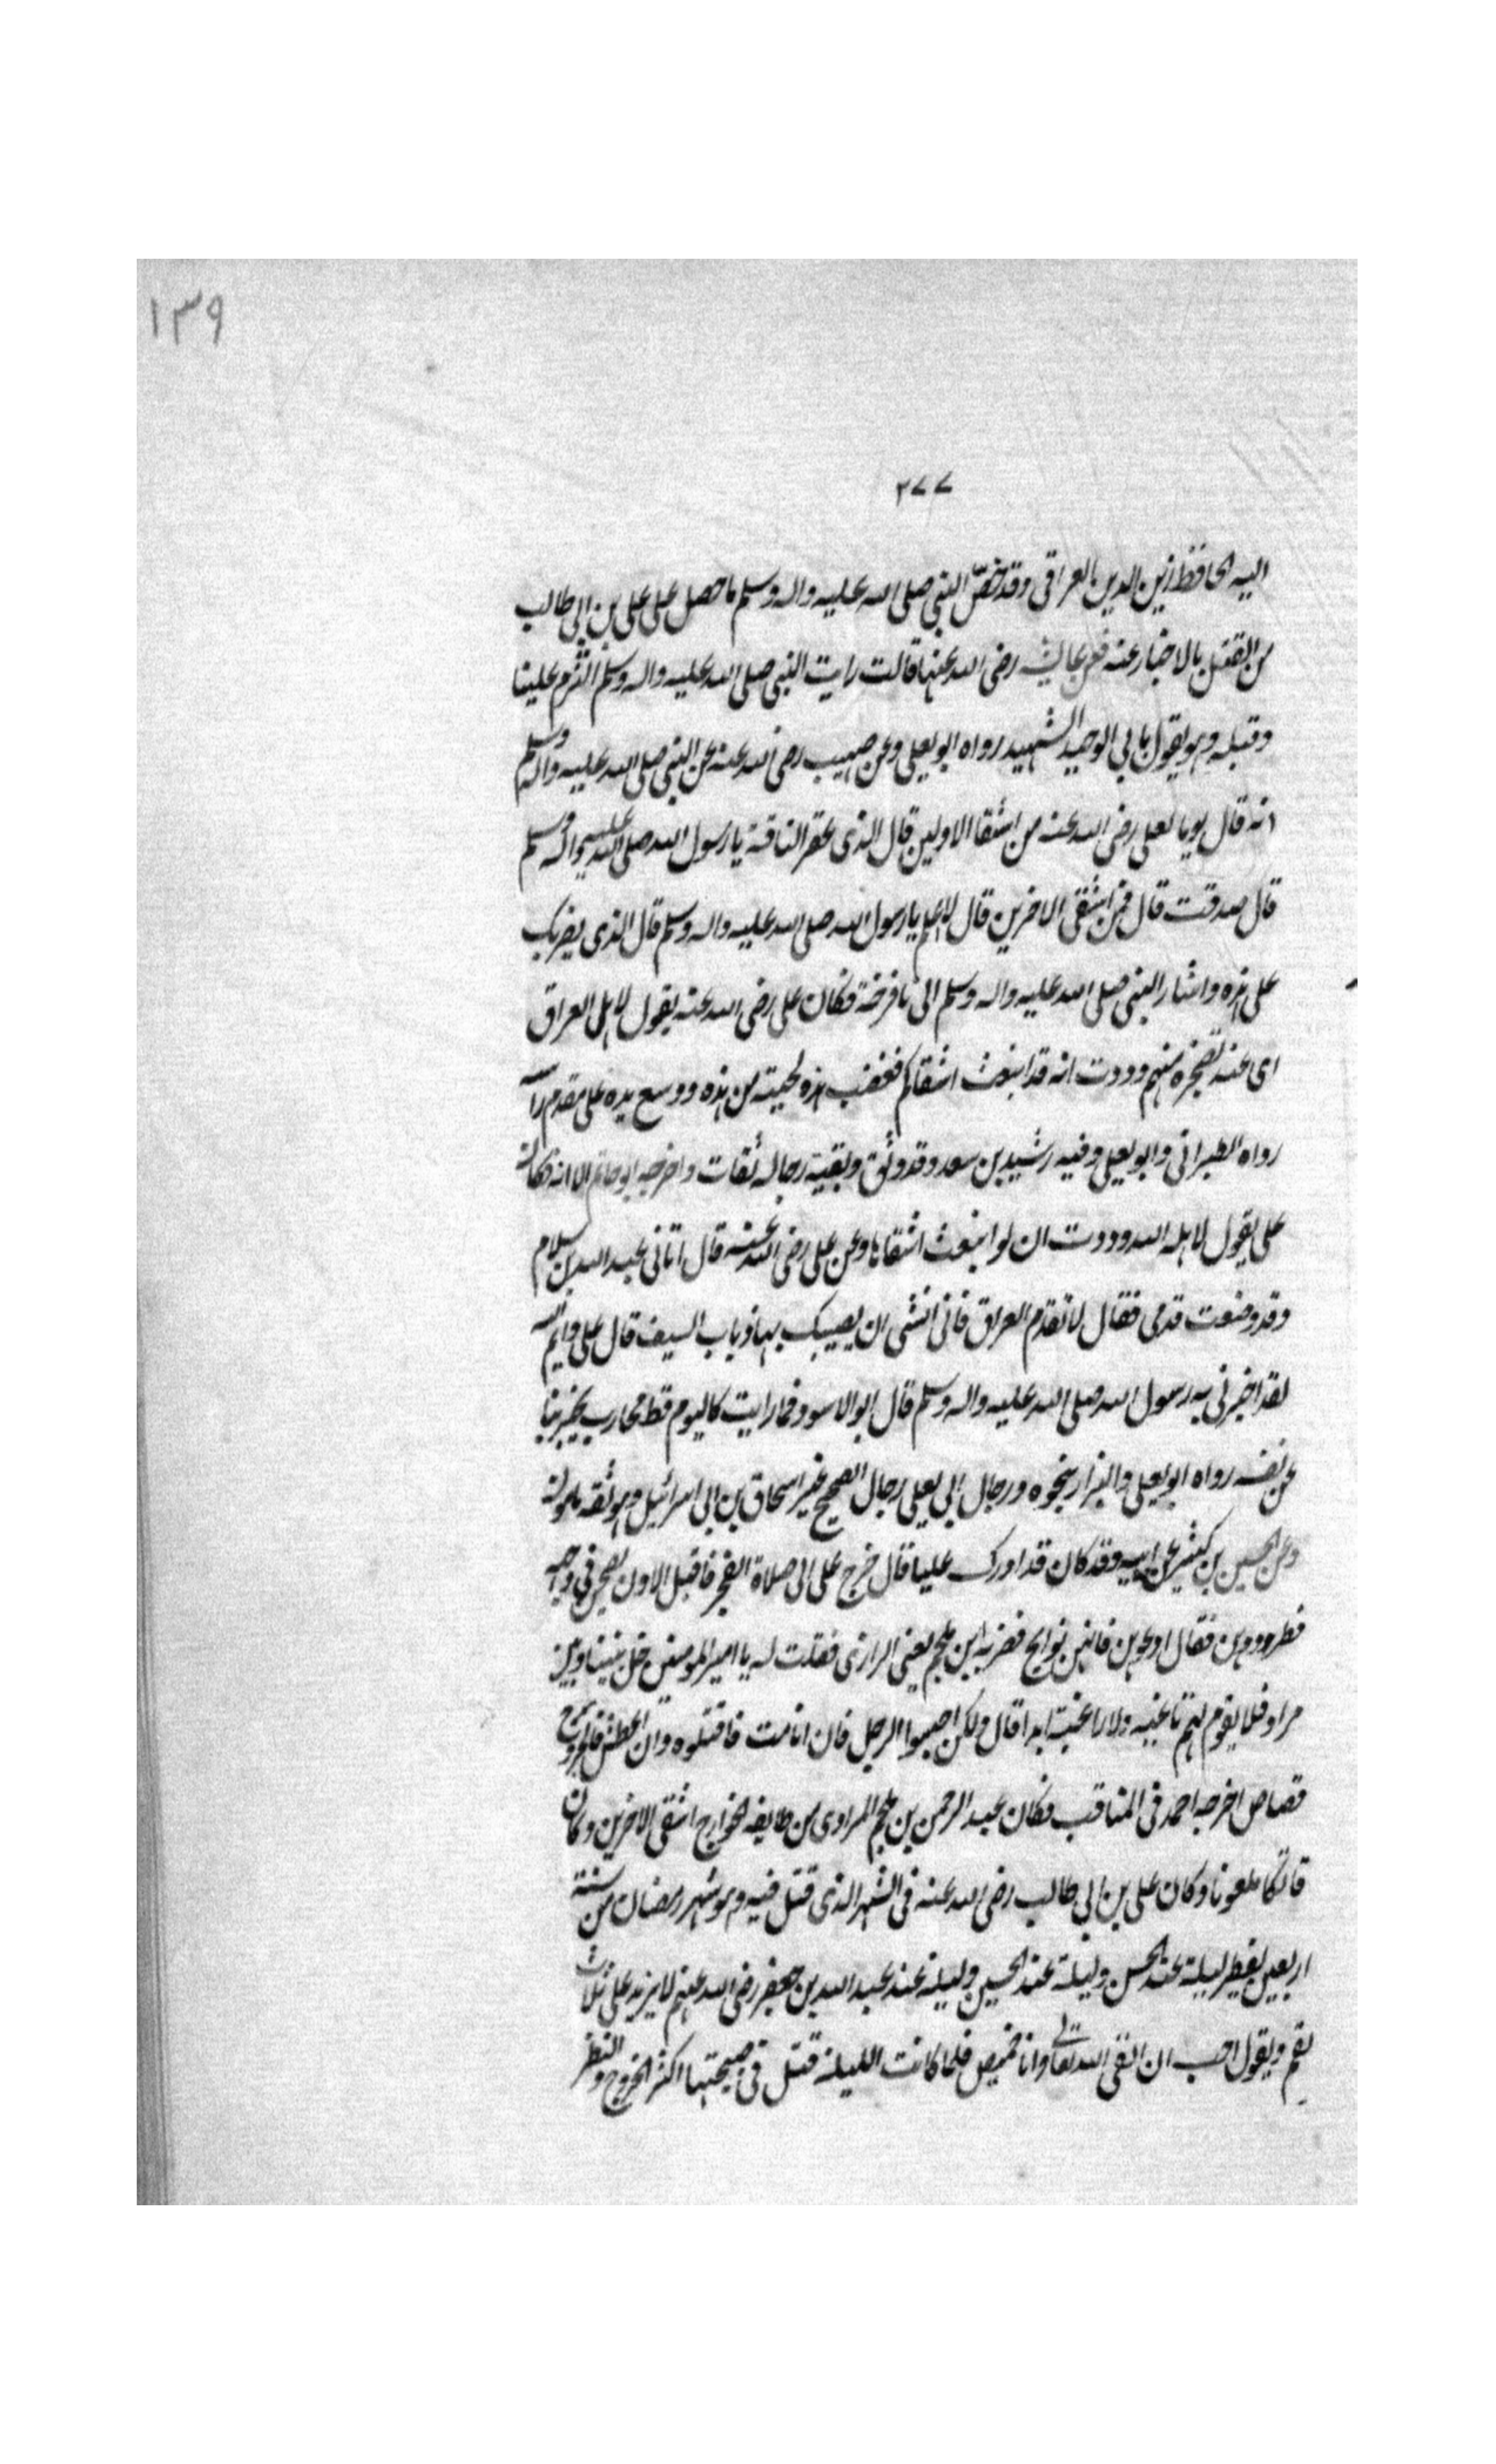 ١٣٩
٢٧٧
اليه الحافظ زين الدين العراقى وقد خص النبى صلى الله عليه واله وسلم ما حصل على على بن ابى طالب
من القتل بالاخبار عنه فعن عايشة رضى الله عنها قالت رايت النبى صلى الله عليه واله وسلم التزم علينا
وقبله وهو يقول بابى الوحيد الشهيد رواه ابو يعلى وعن صهيب رضى الله عنه عن النبى صلى الله عليه واله وسلم
انه قال يوما لعلى رضى الله عنه من اشقا الاولين قال الذى عقر الناقة يا رسول الله صلى الله عليه واله وسلم
قال صدقت قال فمن اشقى الاخرين قال لا علم يا رسول الله صلى الله عليه واله وسلم قال الذى يضربك
على هذه واشار النبى صلى الله عليه واله وسلم الى يافوخه فكان على رضى الله عنه يقول لاهل العراق
اى عند تضجره منهم وددت انه قد انبعث اشقاكم فخضب هذه لحيته من هذه ووضع يده على مقدم راسه
رواه الطبرانى وابو يعلى وفيه رشيد بن سعد وقد وثق وبقية رجاله ثقات واخرجه ابو حاتم الا انه قال
على يقول لاهله الله وددت ان لو انبعث اشقاها وعن على رضى الله عنه قال اتانى عبد الله بن سلام
وقد وضعت قدمى فقال لا تقدم العراق فانى اخشى ان يصيبك بها ذباب السيف قال على وايم الله
لقد اخبرنى به رسول الله صلى الله عليه واله وسلم قال ابو الاسود فما رايت كاليوم قط محارب يخبر بذا
عن نفسه رواه ابو يعلى والبزار بنحوه ورجال ابى يعلى رجال الصحيح غير اسحاق بن ابى اسرائيل وهو ثقة مامون
وعن الحسين بن كثير عن ابيه وقد كان قد ادرك عليا قال خرج على الى صلاة الفجر فاقبل الاون يصحن فى وجهه
فطردوهن فقال دعوهن فانهن نوايح فضربه ابن ملجم يعنى الرازى فقلت له يا امير المومنين خل بيننا وبين
مراد فلا يقوم لهم ثاغية ولا راغية ابدا قال ولكن احبسوا الرجل فان انا مت فاقتلوه وان اعطش فالجروح
قصاص اخرجه احمد فى المناقب فكان عبد الرحمن بن ملجم المرادى من طايفه الخوارج اشقى الاخرين وكان
فاتكا ملعونا وكان على بن ابى طالب رضى الله عنه فى الشهر الذى قتل فيه وهو شهر رمضان من سنة
اربعين يفطر ليلة عند الحسن وليلة عند الحسين وليلة عند عبد الله بن جعفر رضى الله عنهم لا يزيد على ثلاث
لقم ويقول احب ان القى الله تعالى وانا خميص فلما كانت الليلة قتل فى صبيحتها اكثر الخروج والنظر